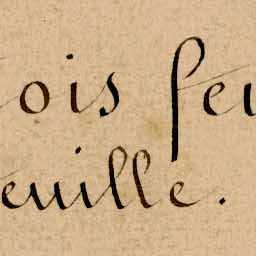 ois feu
euille.